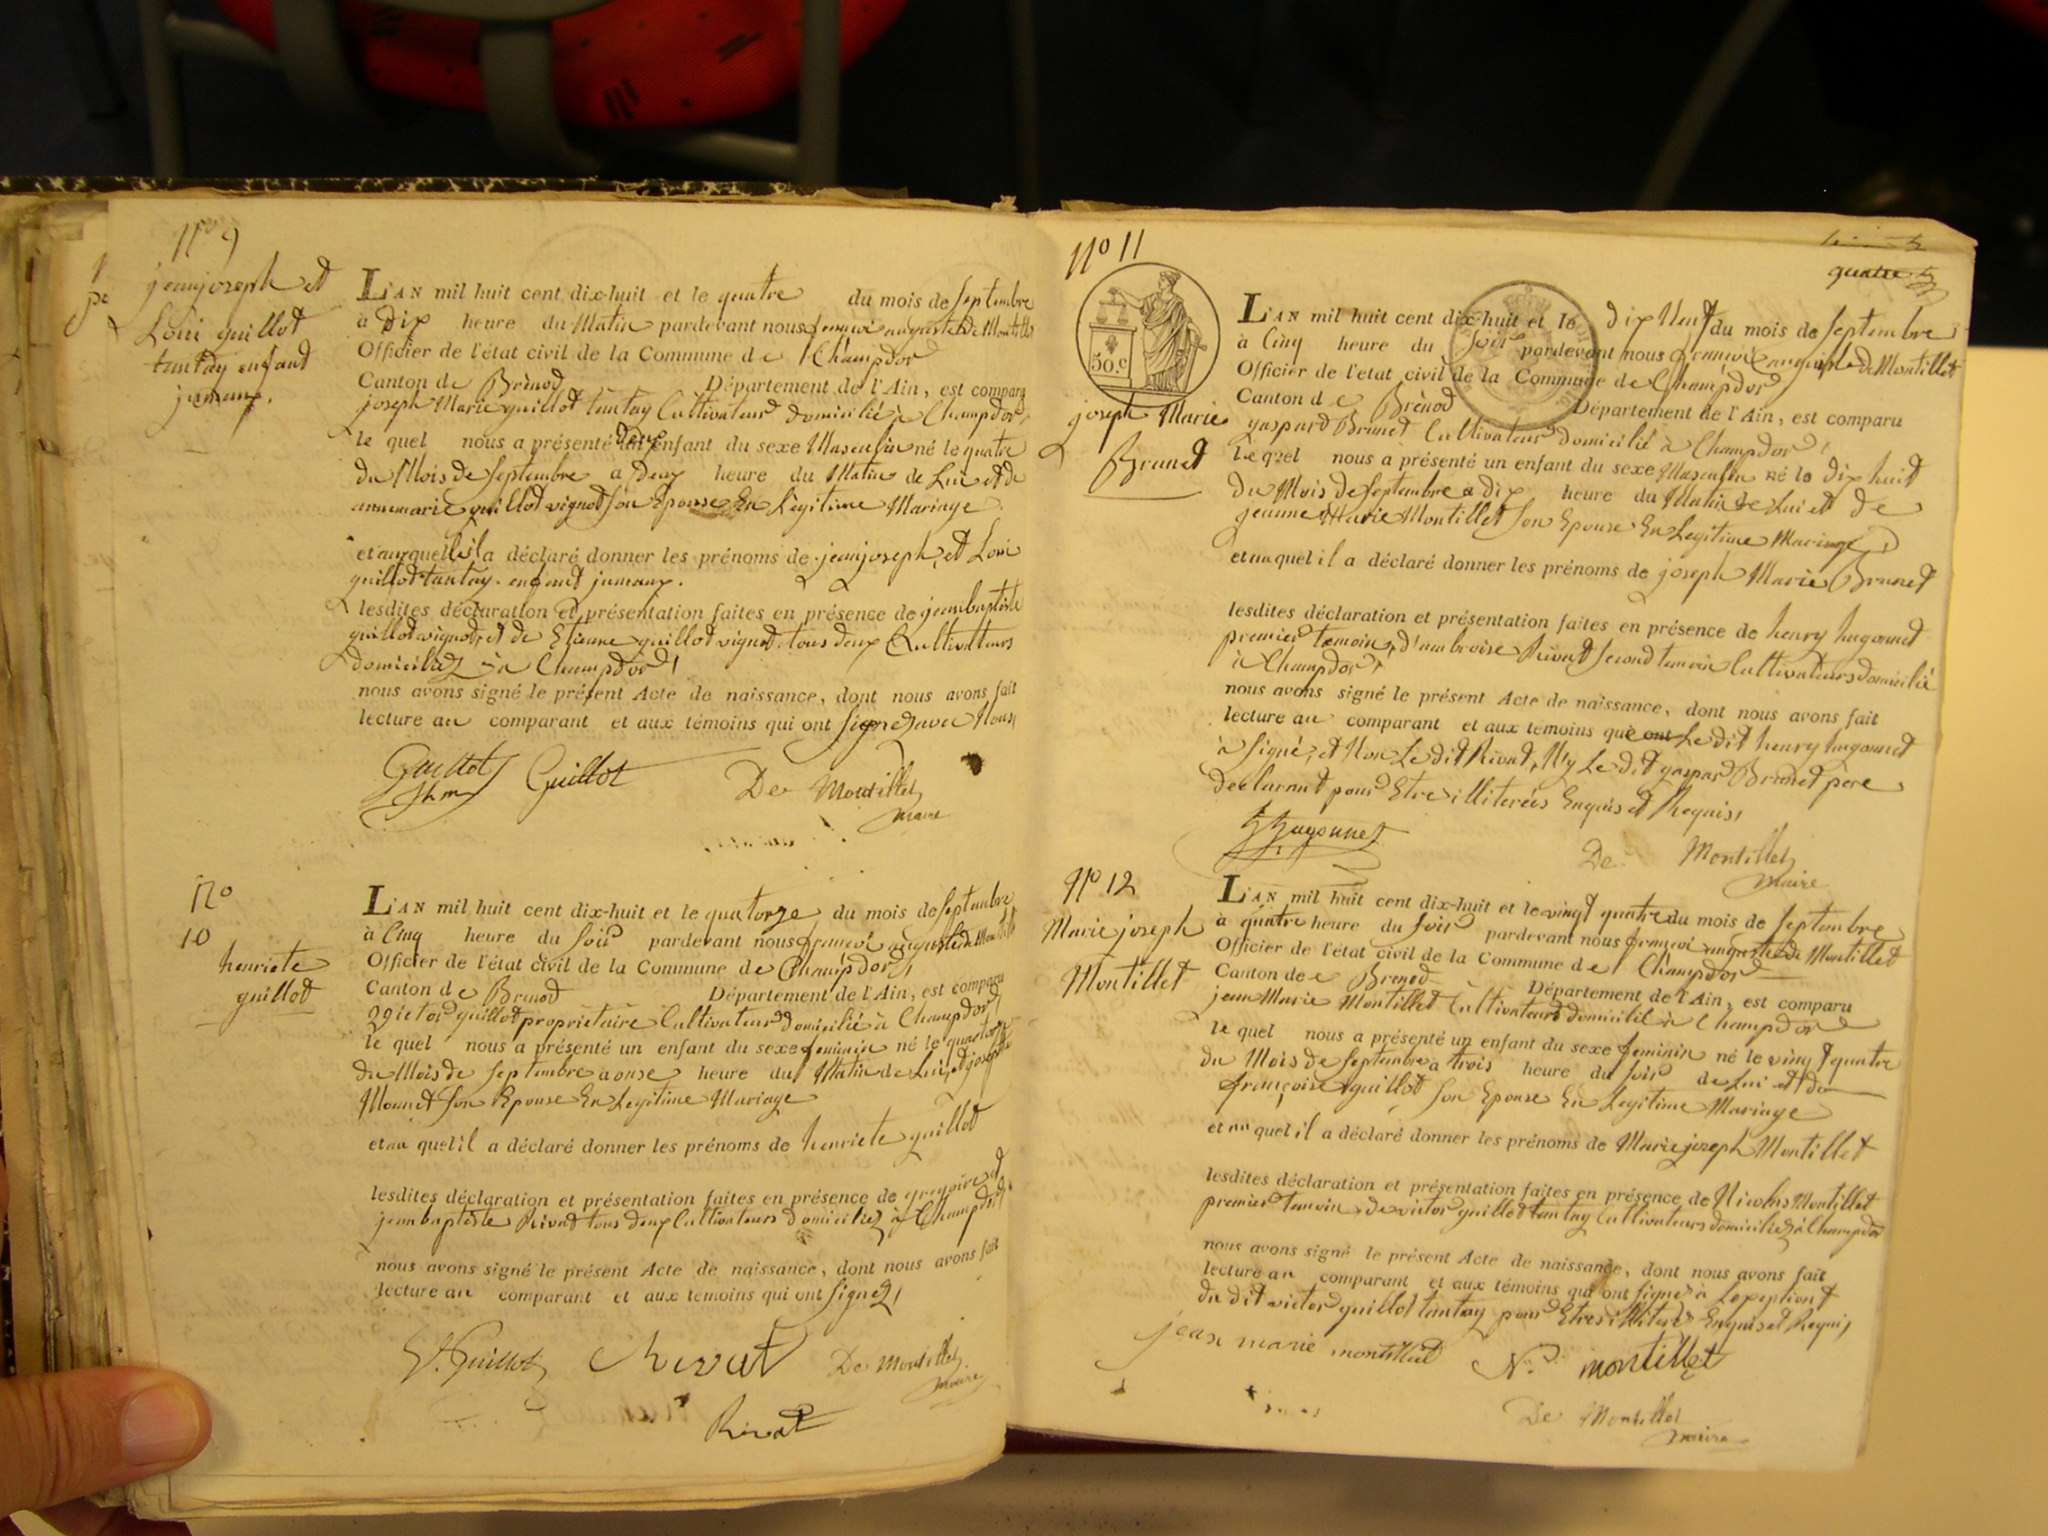 N.º 9
jeanjoseph et
Loui guillot
tantay enfant
jumeaux.
L'AN mil huit cent dix-huit et le quatre du mois de septembre
à Dix heure du Matin pardevant nous françois auguste De Montillet
Officier de l'état civil de la Commune de Champdor
Canton de Brénod Département de l'Ain, est comparu
joseph Marie guillot tantay Cultivateur domicilié à Champdor,
le quel nous a présenté deux enfant du sexe Masculin né le quatre
du Mois de septembre a Deux heure du Matin de Lui et de
annemarie guillot vignod son Epouse En Légitime Mariage
et auxquels il a déclaré donner les prénoms de jeanjoseph, et Loui
guillot tantay. enfant jumeaux.
lesdites déclaration et présentation faites en présence de jeanbaptiste
guillot vignod, et de Etienne guillot vignod. tous deux Cultivateurs
domiciliez à Champdor,
nous avons signé le présent Acte de naissance, dont nous avons fait
lecture au comparant et aux témoins qui ont signez avec Nous,
Guillot Guillot De Montillet
maire
N.º
10
henriete
guillot
L'AN mil huit cent dix-huit et le quatorze du mois de septembre
à Cinq heure du soir pardevant nous françois auguste De Montillet
Officier de l'état civil de la Commune de Champdor,
Canton de Brenod Département de l'Ain, est comparu
victor guillot proprietaire Cultivateur domicilié à Champdor,
le quel nous a présenté un enfant du sexe feminin né le quatorze
du Mois de septembre a onse heure du Matin de Lui, et josephte
Monnet son Epouse En Legitime Mariage
et au quel il a déclaré donner les prénoms de henriete guillot
lesdites déclaration et présentation faites en présence de gregoire et
jeanbaptiste Rivat tous deux Cultivateurs domiciliez à Champdor,
nous avons signé le présent Acte de naissance, dont nous avons fait
lecture au comparant et aux temoins qui ont signez,
V. Guillot Rivat De Montillet
maire
Rivat
quatre
N.º 11
50.c
joseph Marie
Brunet
L'AN mil huit cent dix-huit et le dix Neuf du mois de septembre
à Cinq heure du soir pardevant nous françois auguste De Montillet
Officier de l'etat civil de la Commune de Champdor,
Canton de Brénod Département de l'Ain, est comparu
gaspard Brunet Cultivateur domicilié à Champdor,
le quel nous a présenté un enfant du sexe Masculin né le dix huit
du Mois de septembre a dix heure du Matin de Lui et de
jeanne Marie Montillet son Epouse En Legitime Mariage,
et au quel il a déclaré donner les prénoms de joseph Marie Brunet
lesdites déclaration et présentation faites en présence de henry hugonnet
premier temoin, d'ambroise Rivat second temoin Cultivateurs domicilié
à Champdor,
nous avons signé le présent Acte de naissance, dont nous avons fait
lecture au comparant et aux temoins qui ont Le dit henry hugonnet
à signé, et Non Le dit Rivat, N'y Le dit gaspar Brunet pere
declarant pour Etre illiterés Enquis et Requis,
h hugonnet
De Montillet
maire
N.º 12
Marie joseph
Montillet
L'AN mil huit cent dix-huit et le vingt quatre du mois de septembre
à quatre heure du soir pardevant nous françoi auguste De Montillet
Officier de l'etat civil de la Commune de Champdor
Canton de Brenod Département de l'Ain, est comparu
jean Marie Montillet Cultivateur domicilié à Champdor
le quel nous a présenté un enfant du sexe feminin né le vingt quatre
du Mois de septembre a trois heure du soir de Lui et de
françoise guillot son Epouse En Legitime Mariage
et au quel il a déclaré donner les prénoms de Marie joseph Montillet
lesdites déclaration et présentation faites en présence de Nicolas Montillet
premier temoin, de victor guillot tantay Cultivateurs domiciliez à Champdor
nous avons signé le présent Acte de naissance, dont nous avons fait
lecture au comparant et aux témoins qui ont signé à Lexeption
du dit victor guillot tantay pour Etres illiteré Enquis et Requis,
jean marie montillet N. montillet
De Montillet
maire